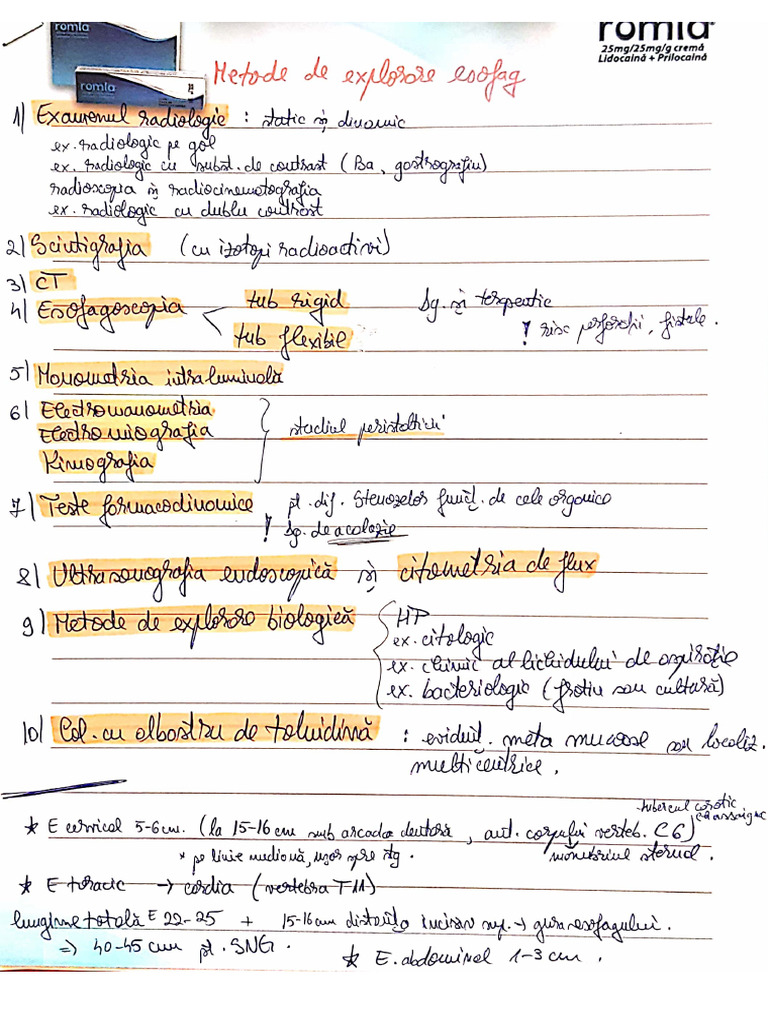 romla
romla
romla
25mg/25mg/g cremă
Lidocaină + Prilocaină
Metode de explorare esofag
1) Examenul radiologic : static și dinamic
ex. radiologic pe gol
ex. radiologic cu subst. de contrast (Ba, gastrografin)
radioscopia și radiocinematografia
ex. radiologic cu dublu contrast
2) Scintigrafia (cu izotopi radioactivi)
3) CT
4) Esofagoscopia < tub rigid
tub flexibil
Dg. și terpeutic
! risc perforații, fistule.
5) Manometria intraluminală
6) Electromanometria
Electromiografia
Kimografia
studiul peristalticii
7) Teste farmacodinamice pt. dif. stenozelor funcț. de cele organice
! Dg. de acalazie
8) Ultrasonografia endoscopică și citometria de flux
9) Metode de explorare biologică
HP
ex. citologic
ex. chimic al lichidului de aspirație
ex. bacteriologic (frotiu sau cultură)
10) Col. cu albastru de toluidină : evidenț. meta mucoase sau localiz.
multicentrice.
tubercul carotic
Chassaignac
* E cervical 5-6cm. (la 15-16 cm sub arcada dentară, ant. corpului verteb. C6)
* pe linie mediană, ușor spre stg. manubriul sternal.
* E toracic → cardia (vertebra T11)
lungime totală E 22-25 + 15-16cm distanța incisivi sup. → gura esofagului.
⇒ 40-45 cm pt. SNG.
* E. abdominal 1-3 cm.